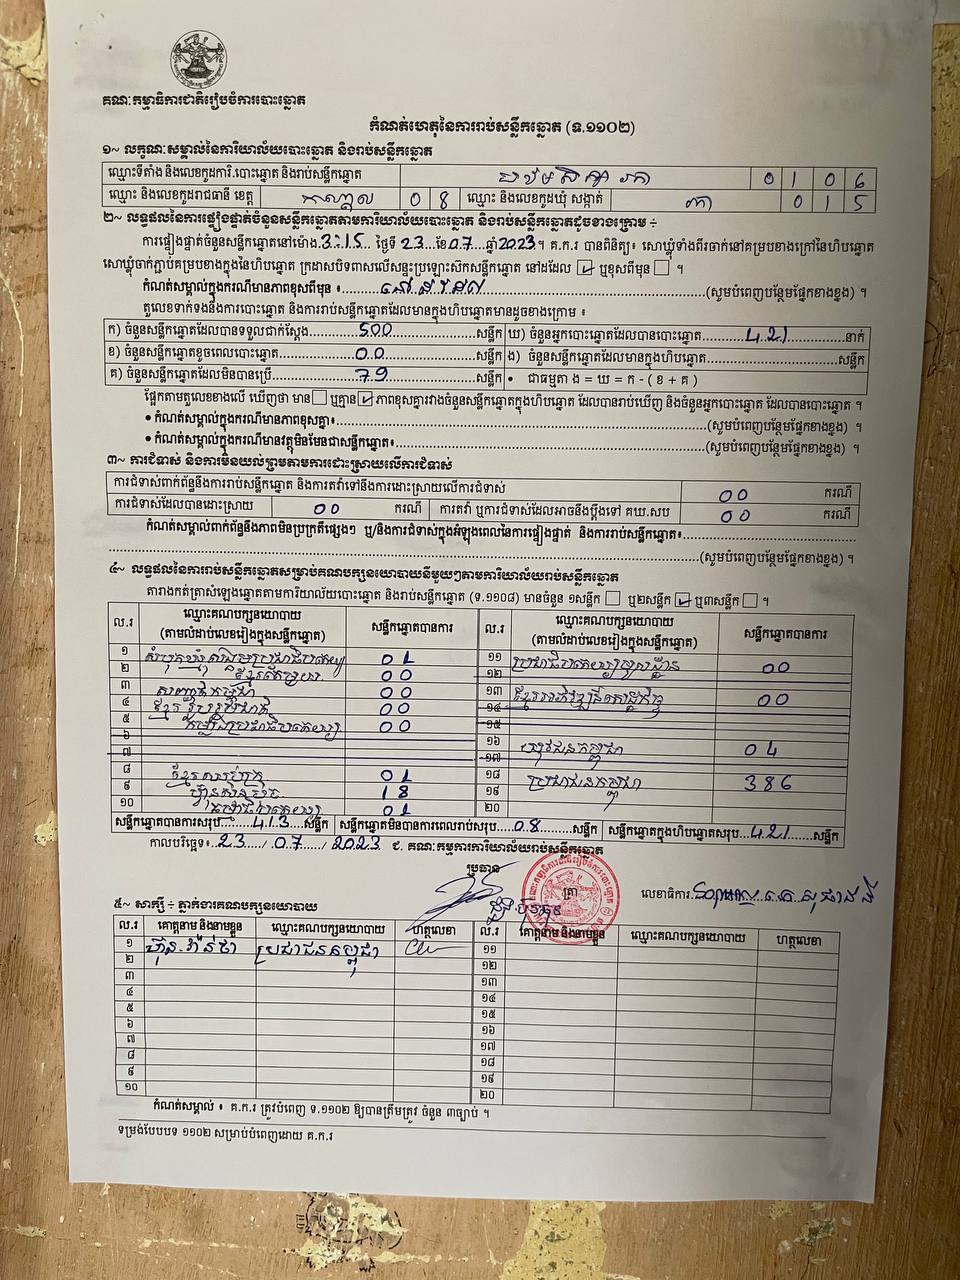 គណៈកម្មាធិការជាតិរៀបចំការបោះឆ្នោត
កំណត់ហេតុនៃការរាប់សន្លឹកឆ្នោត (ទ.១១០២)
១~ លក្ខណៈសម្គាល់នៃការិយាល័យបោះឆ្នោត និងរាប់សន្លឹកឆ្នោត
ឈ្មោះទីតាំង និងលេខកូដការិ.បោះឆ្នោត និងរាប់សន្លឹកឆ្នោត 0 1 0 6
ឈ្មោះ និងលេខកូដរាជធានី ខេត្ត កណ្តាល 0 8 ឈ្មោះ និងលេខកូដឃុំ សង្កាត់ រកា 0 1 5
២~ លទ្ធផលនៃការផ្ទៀងផ្ទាត់ចំនួនសន្លឹកឆ្នោតតាមការិយាល័យបោះឆ្នោត និងរាប់សន្លឹកឆ្នោតដូចខាងក្រោម ÷
ការផ្ទៀងផ្ទាត់ចំនួនសន្លឹកឆ្នោតនៅម៉ោង 3:15 ថ្ងៃទី 23 ខែ 07 ឆ្នាំ 2023 ។ គ.ក.រ បានពិនិត្យ៖ សោឃ្លុំទាំងពីរចាក់នៅគម្របខាងក្រៅនៃហិបឆ្នោត
សោឃ្លុំចាក់ភ្ជាប់គម្របខាងក្នុងនៃហិបឆ្នោត ក្រដាសបិទពាសលើសន្ទះប្រឡោះស៊កសន្លឹកឆ្នោត នៅដដែល ☑ ឬខុសពីមុន ☐ ។
កំណត់សម្គាល់ក្នុងករណីមានភាពខុសពីមុន ៖ នៅដដែល (សូមបំពេញបន្ថែមផ្នែកខាងខ្នង) ។
តួលេខទាក់ទងនឹងការបោះឆ្នោត និងការរាប់សន្លឹកឆ្នោតដែលមានក្នុងហិបឆ្នោតមានដូចខាងក្រោម ៖
ក) ចំនួនសន្លឹកឆ្នោតដែលបានទទួលជាក់ស្តែង 500 សន្លឹក ឃ) ចំនួនអ្នកបោះឆ្នោតដែលបានបោះឆ្នោត 421 នាក់
ខ) ចំនួនសន្លឹកឆ្នោតខូចពេលបោះឆ្នោត 00 សន្លឹក ង) ចំនួនសន្លឹកឆ្នោតដែលមានក្នុងហិបឆ្នោត សន្លឹក
គ) ចំនួនសន្លឹកឆ្នោតដែលមិនបានប្រើ 79 សន្លឹក • ជាធម្មតា ង = ឃ = ក - ( ខ + គ )
ផ្អែកតាមតួលេខខាងលើ ឃើញថា មាន ☐ ឬគ្មាន ☑ ភាពខុសគ្នារវាងចំនួនសន្លឹកឆ្នោតក្នុងហិបឆ្នោត ដែលបានរាប់ឃើញ និងចំនួនអ្នកបោះឆ្នោត ដែលបានបោះឆ្នោត ។
• កំណត់សម្គាល់ក្នុងករណីមានភាពខុសគ្នា៖ (សូមបំពេញបន្ថែមផ្នែកខាងខ្នង) ។
• កំណត់សម្គាល់ក្នុងករណីមានវត្ថុមិនមែនជាសន្លឹកឆ្នោត៖ (សូមបំពេញបន្ថែមផ្នែកខាងខ្នង) ។
៣~ ការជំទាស់ និងការមិនយល់ព្រមតាមការដោះស្រាយលើការជំទាស់
ការជំទាស់ពាក់ព័ន្ធនឹងការរាប់សន្លឹកឆ្នោត និងការតវ៉ាទៅនឹងការដោះស្រាយលើការជំទាស់ 00 ករណី
ការជំទាស់ដែលបានដោះស្រាយ 00 ករណី ការតវ៉ា ឬការជំទាស់ដែលអាចនឹងប្តឹងទៅ គឃ.សប 00 ករណី
កំណត់សម្គាល់ពាក់ព័ន្ធនឹងភាពមិនប្រក្រតីផ្សេងៗ ឬ/និងការជំទាស់ក្នុងអំឡុងពេលនៃការផ្ទៀងផ្ទាត់ និងការរាប់សន្លឹកឆ្នោត៖
(សូមបំពេញបន្ថែមផ្នែកខាងខ្នង) ។
៤~ លទ្ធផលនៃការរាប់សន្លឹកឆ្នោតសម្រាប់គណបក្សនយោបាយនីមួយៗតាមការិយាល័យរាប់សន្លឹកឆ្នោត
តារាងកត់ត្រាសំឡេងឆ្នោតតាមការិយាល័យបោះឆ្នោត និងរាប់សន្លឹកឆ្នោត (ទ.១១០៨) មានចំនួន ១សន្លឹក ☐ ឬ២សន្លឹក ☑ ឬ៣សន្លឹក ☐ ។
ល.រ ឈ្មោះគណបក្សនយោបាយ (តាមលំដាប់លេខរៀងក្នុងសន្លឹកឆ្នោត) សន្លឹកឆ្នោតបានការ ល.រ ឈ្មោះគណបក្សនយោបាយ (តាមលំដាប់លេខរៀងក្នុងសន្លឹកឆ្នោត) សន្លឹកឆ្នោតបានការ
១ សំបុកឃ្មុំសង្គមប្រជាធិបតេយ្យ 01 ១១ ប្រជាធិបតេយ្យមូលដ្ឋាន 00
២ ខ្មែរតែមួយ 00 ១២
៣ សញ្ជាតិកម្ពុជា 00 ១៣ ខ្មែរអភិវឌ្ឍន៍សេដ្ឋកិច្ច 00
៤ ខ្មែររួបរួមជាតិ 00 ១៤
៥ កម្លាំងប្រជាធិបតេយ្យ 00 ១៥
៦ ១៦ យុវជនកម្ពុជា 04
៧ ១៧
៨ ខ្មែរអភិរក្ស 01 ១៨ ប្រជាជនកម្ពុជា 386
៩ ហ៊្វុនស៊ិនប៉ិច 18 ១៩
១០ ធម្មាធិបតេយ្យ 01 ២០
សន្លឹកឆ្នោតបានការសរុប 413 សន្លឹក សន្លឹកឆ្នោតមិនបានការពេលរាប់សរុប 08 សន្លឹក សន្លឹកឆ្នោតក្នុងហិបឆ្នោតសរុប 421 សន្លឹក
កាលបរិច្ឆេទ៖ 23 / 07 / 2023 ជ. គណៈកម្មការការិយាល័យរាប់សន្លឹកឆ្នោត
ប្រធាន
ត្រា
លេខាធិការ
៥~ សាក្សី ÷ ភ្នាក់ងារគណបក្សនយោបាយ
ល.រ គោត្តនាម និងនាមខ្លួន ឈ្មោះគណបក្សនយោបាយ ហត្ថលេខា ល.រ គោត្តនាម និងនាមខ្លួន ឈ្មោះគណបក្សនយោបាយ ហត្ថលេខា
១ ប្រជាជនកម្ពុជា ១១
២ ១២
៣ ១៣
៤ ១៤
៥ ១៥
៦ ១៦
៧ ១៧
៨ ១៨
៩ ១៩
១០ ២០
កំណត់សម្គាល់ ៖ គ.ក.រ ត្រូវបំពេញ ទ.១១០២ ឱ្យបានត្រឹមត្រូវ ចំនួន ៣ច្បាប់ ។
ទម្រង់បែបបទ ១១០២ សម្រាប់បំពេញដោយ គ.ក.រ